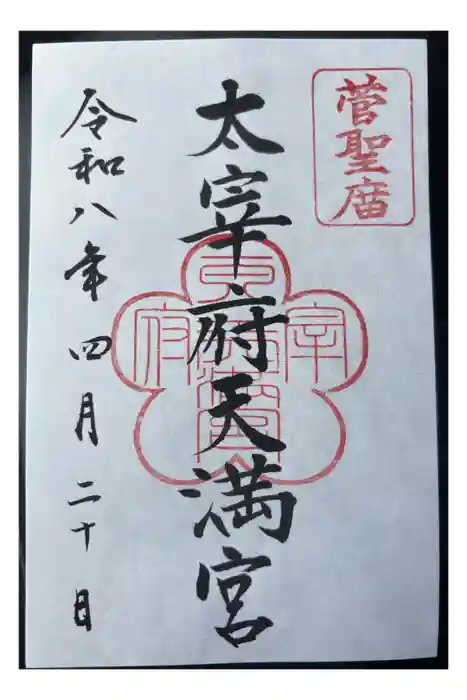 菅聖廟
太宰府天満宮
令和八年四月二十日